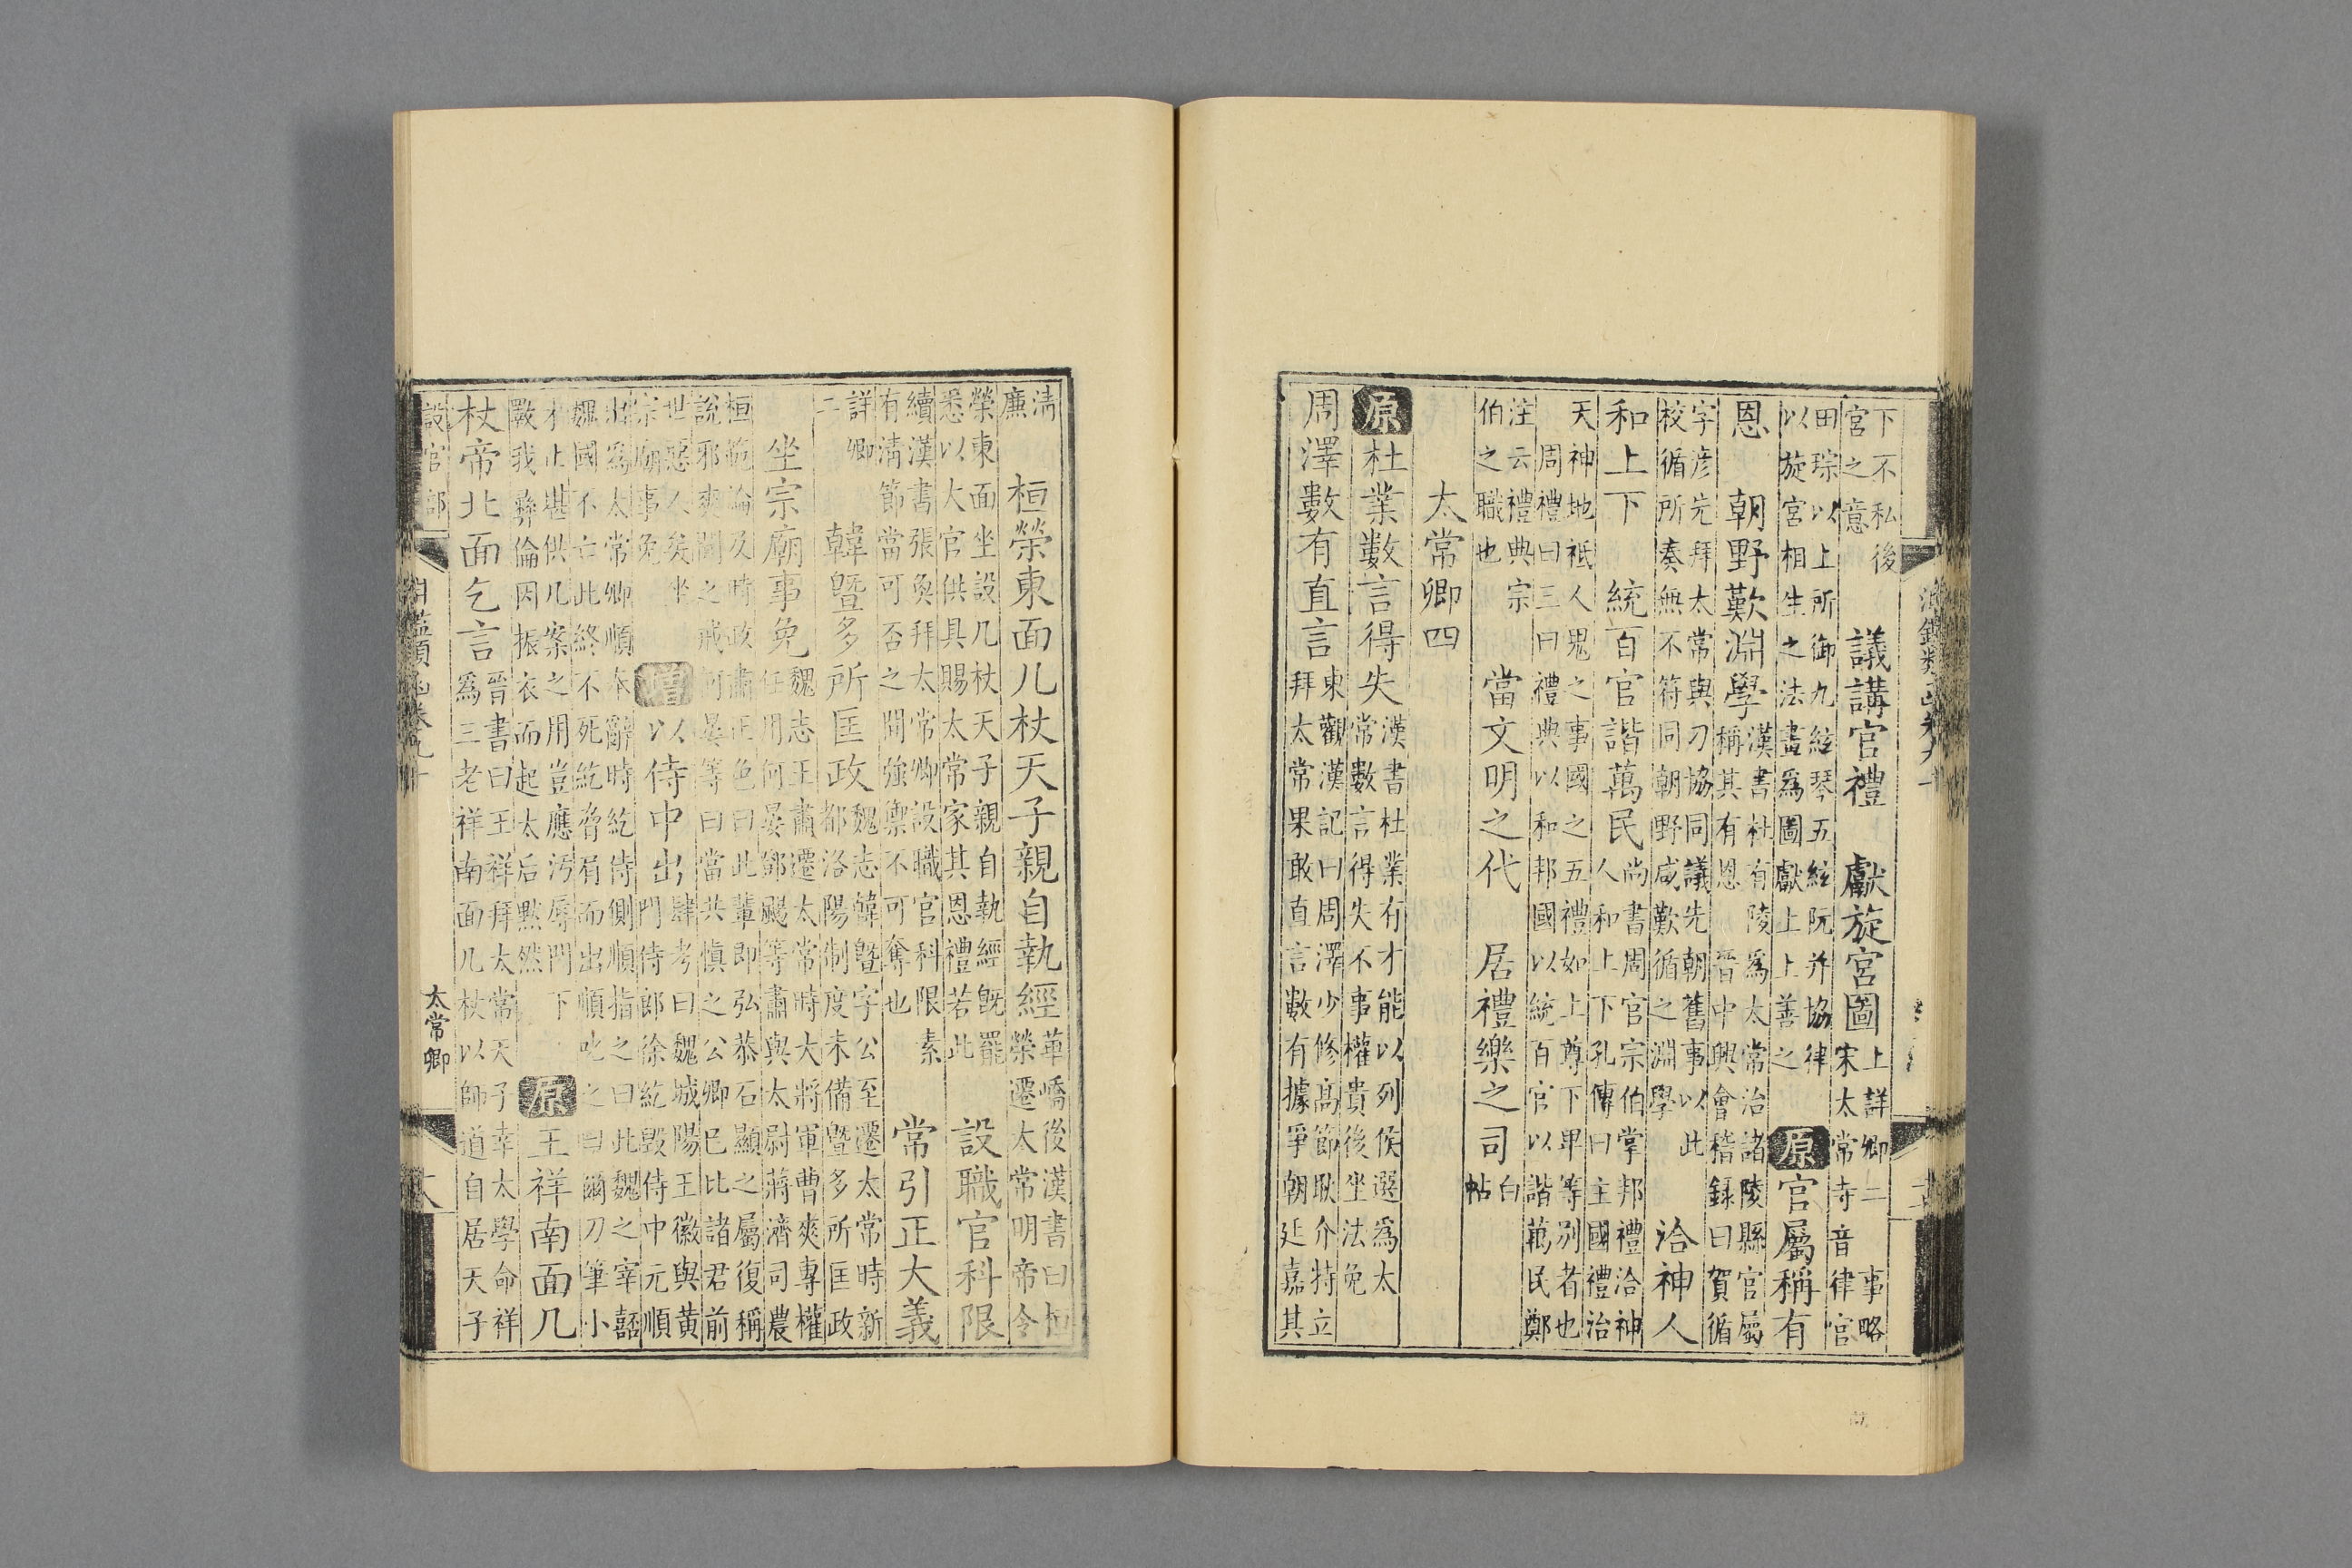 淵鑑類函卷九十
下不私後
宮之意
議講官禮　獻旋宮圖
上詳卿二　事略
宋太常寺音律官
田琮以上所御九絃琴五絃阮并協律
以旋宮相生之法畫爲圖獻上上善之
原官屬稱有
恩　朝野歎淵學
漢書杜有陵爲太常治諸陵縣官屬
稱其有恩　晉中興會稽録曰賀循
字彦先拜太常與刀協同議先朝舊事以此
校循所奏無不符同朝野咸歎循之淵學
洽神人
和上下　統百官諧萬民
尚書周官宗伯掌邦禮洽神
人和上下孔傳曰主國禮治
天神地祇人鬼之事國之五禮如上尊下卑等别者也
周禮曰三曰禮典以和邦國以統百官以諧萬民鄭
注云禮典宗
伯之職也
當文明之代　居禮樂之司
白
帖
太常卿四
原杜業數言得失
漢書杜業有才能以列侯選爲太
常數言得失不事權貴後坐法免
周澤數有直言
東觀漢記曰周澤少修髙節耿介特立
拜太常果敢直言數有據爭朝廷嘉其
清
廉
桓榮東面几杖天子親自執經
華嶠後漢書曰桓
榮遷太常明帝令
榮東面坐設几杖天子親自執經既罷
悉以大官供具賜太常家其恩禮若此
設職官科限
續漢書張奐拜太常卿設職官科限素
有清節當可否之間強禦不可奪也
常引正大義
詳卿
二
韓曁多所匡政
魏志韓曁字公至遷太常時新
都洛陽制度未備曁多所匡政
坐宗廟事免
魏志王肅遷太常時大將軍曹爽專權
任用何晏鄧颺等肅與太尉蔣濟司農
桓範論及時政肅正色曰此輩即弘恭石顯之屬復稱
說邪爽聞之戒何晏等曰當共慎之公卿已比諸君前
世惡人矣坐
宗廟事免
增以侍中出
肆考曰魏城陽王徽與黄
門侍郎徐紇毁侍中元順
出爲太常卿順奉辭時紇侍側順指之曰此魏之宰嚭
魏國不亡此終不死紇脅肩而出順叱之曰爾刀筆小
才止堪供几案之用豈應汚辱門下
斁我彞倫因振衣而起太后黙然
原王祥南面几
杖帝北面乞言
晉書曰王祥拜太常天子幸太學命祥
爲三老祥南面几杖以師道自居天子
設官部
淵鑑類函卷九十
太常卿